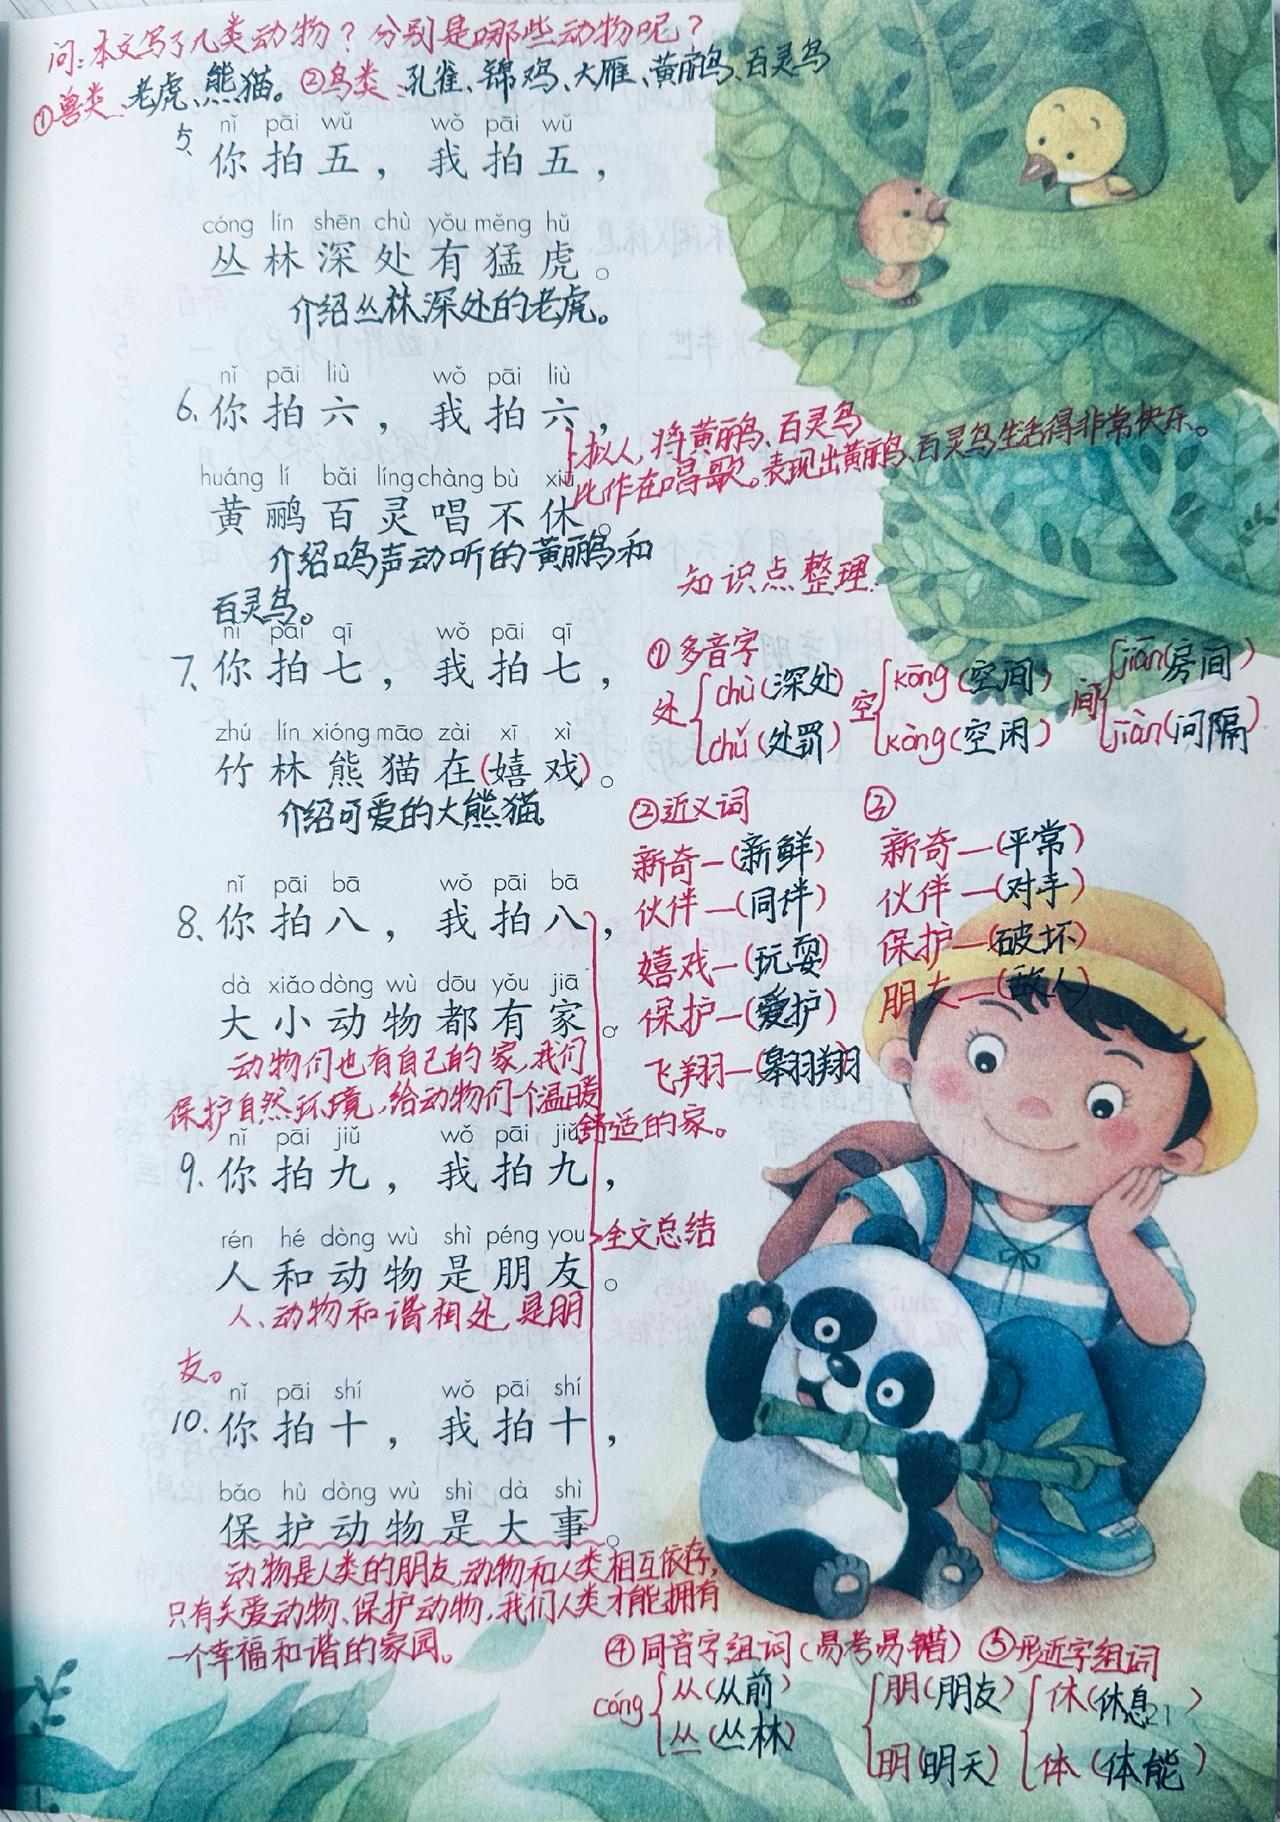 问：本文写了几类动物？分别是哪些动物呢？
①兽类：老虎、熊猫。②鸟类：孔雀、锦鸡、大雁、黄鹂鸟、百灵鸟
nǐ pāi wǔ wǒ pāi wǔ
5、你拍五，我拍五，
cóng lín shēn chù yǒu měng hǔ
丛林深处有猛虎。
介绍丛林深处的老虎。
nǐ pāi liù wǒ pāi liù
6、你拍六，我拍六，
拟人，将黄鹂鸟、百灵鸟
比作在唱歌。表现出黄鹂鸟、百灵鸟生活得非常快乐。
huáng lí bǎi líng chàng bù xiū
黄鹂百灵唱不休。
介绍鸣声动听的黄鹂鸟和
百灵鸟。
知识点整理：
nǐ pāi qī wǒ pāi qī
7、你拍七，我拍七，
zhú lín xióng māo zài xī xì
竹林熊猫在(嬉戏)。
介绍可爱的大熊猫。
①多音字
处{chù(深处) 空{kōng(空间) 间{jiān(房间)
chǔ(处罚) kòng(空闲) jiàn(间隔)
②近义词
新奇—(新鲜)
伙伴—(同伴)
嬉戏—(玩耍)
保护—(爱护)
飞翔—(翱翔)
③
新奇—(平常)
伙伴—(对手)
保护—(破坏)
朋友—(敌人)
nǐ pāi bā wǒ pāi bā
8、你拍八，我拍八，
dà xiǎo dòng wù dōu yǒu jiā
大小动物都有家。
动物们也有自己的家，我们
保护自然环境，给动物们一个温暖
舒适的家。
nǐ pāi jiǔ wǒ pāi jiǔ
9、你拍九，我拍九，
rén hé dòng wù shì péng you
人和动物是朋友。
全文总结
人、动物和谐相处，是朋
友。
nǐ pāi shí wǒ pāi shí
10、你拍十，我拍十，
bǎo hù dòng wù shì dà shì
保护动物是大事。
动物是人类的朋友，动物和人类相互依存，
只有关爱动物、保护动物，我们人类才能拥有
一个幸福和谐的家园。
④同音字组词(易考易错)
cóng{从(从前)
丛(丛林)
⑤形近字组词
{朋(朋友) {休(休息)
明(明天) 体(体能)
21